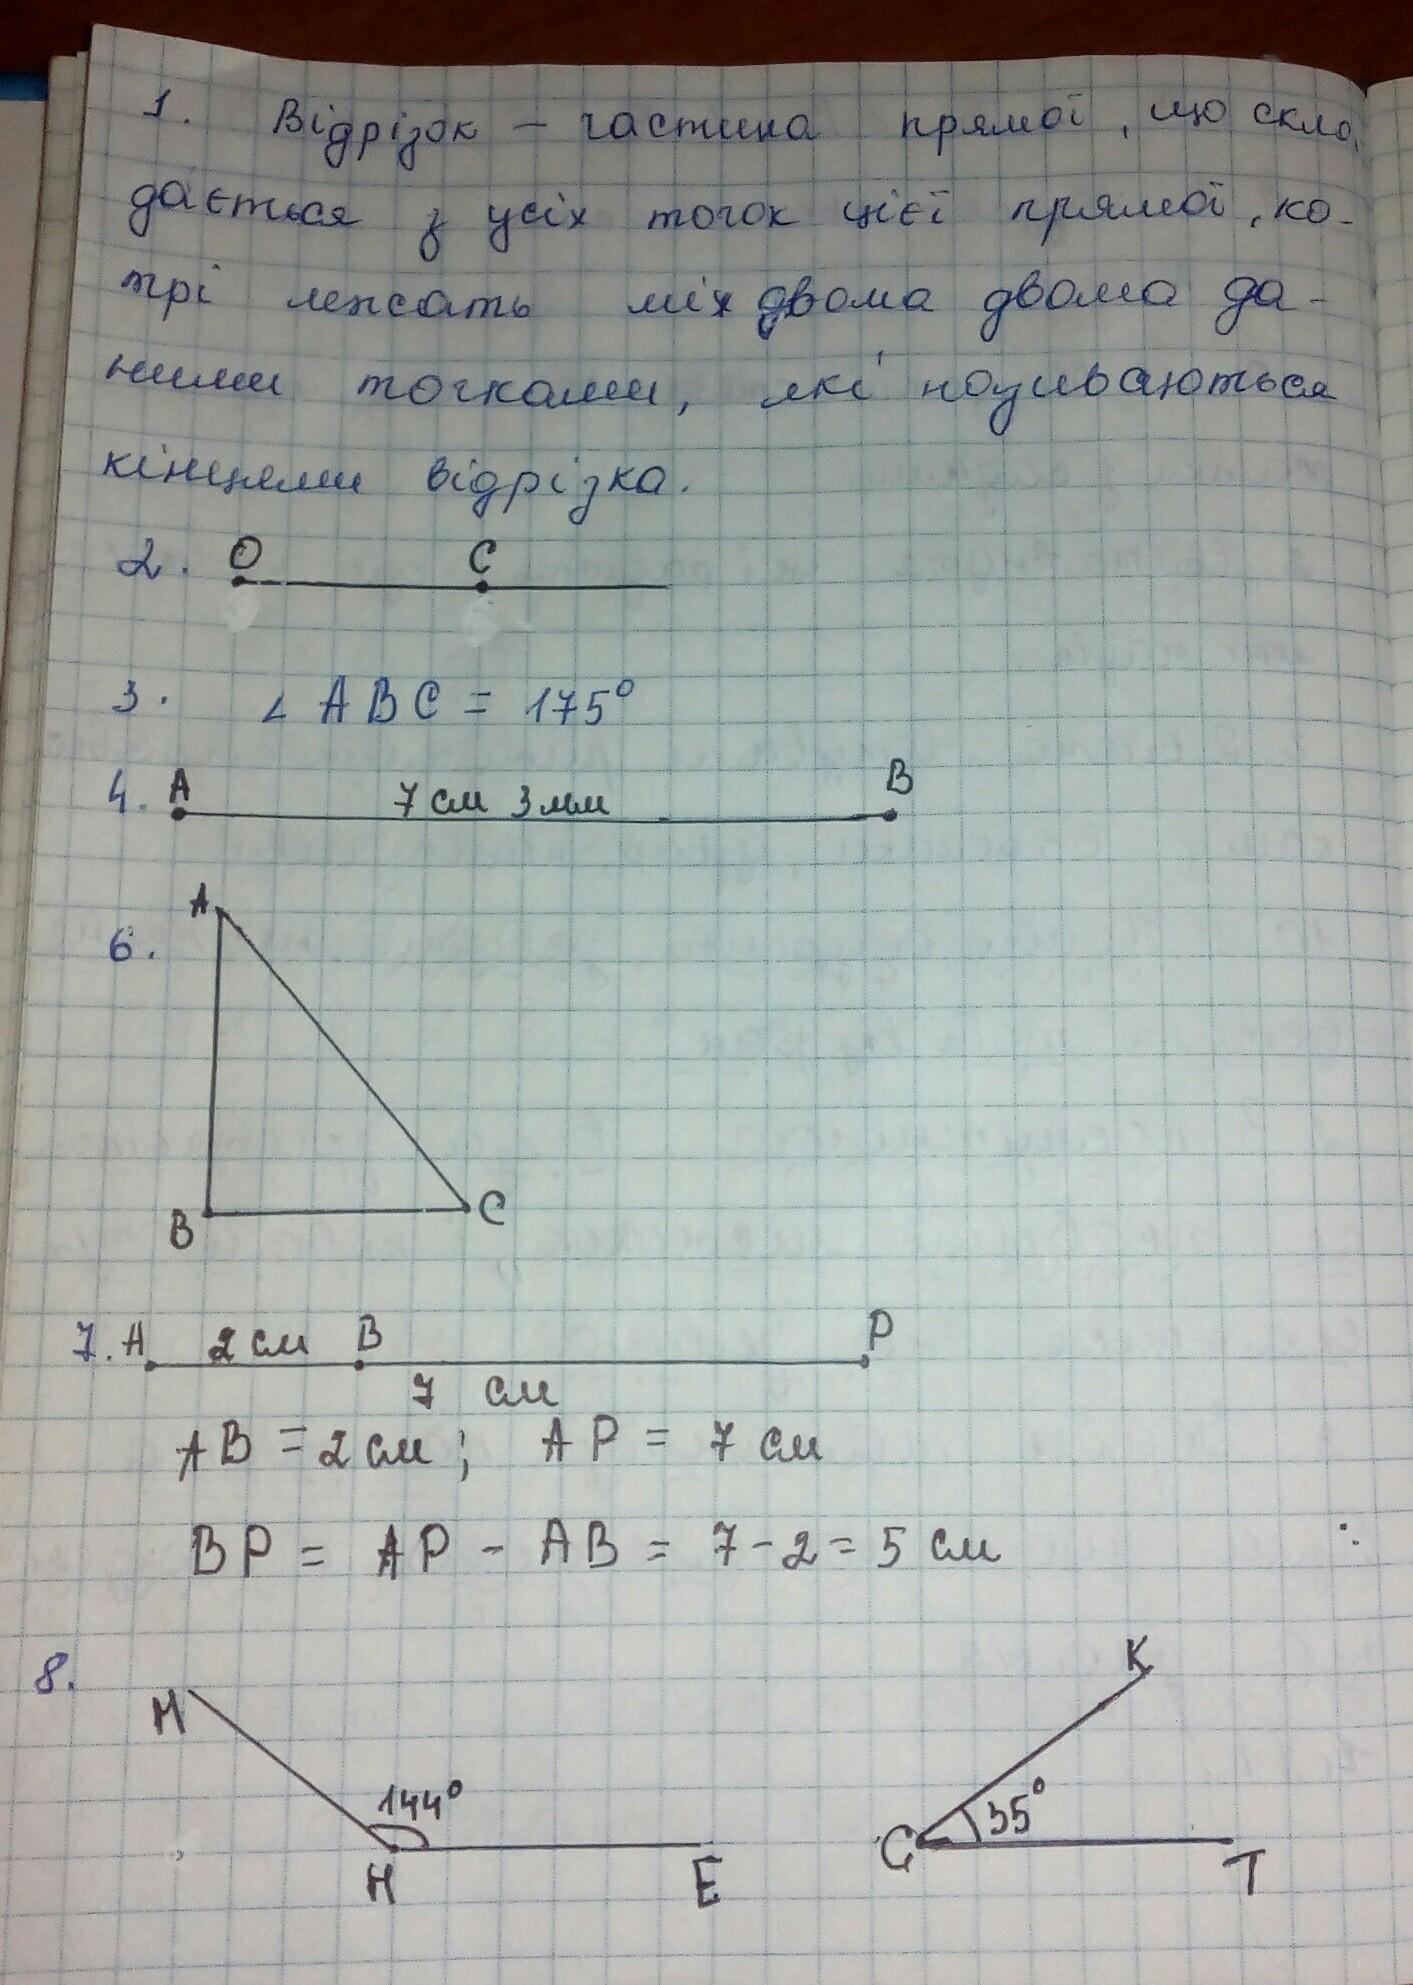 1. Відрізок – частина прямої, що скла
дається з усіх точок цієї прямої, ко-
трі лежать між двома двома да-
ними точками, які називаються
кінцями відрізка.
2. O C
3. ∠ ABC = 175°
4. A 7 см 3 мм B
A
6.
B C
7. A 2 см B P
7 см
AB = 2 см; AP = 7 см
BP = AP - AB = 7 - 2 = 5 см
8. M K
144° 35°
H E C T